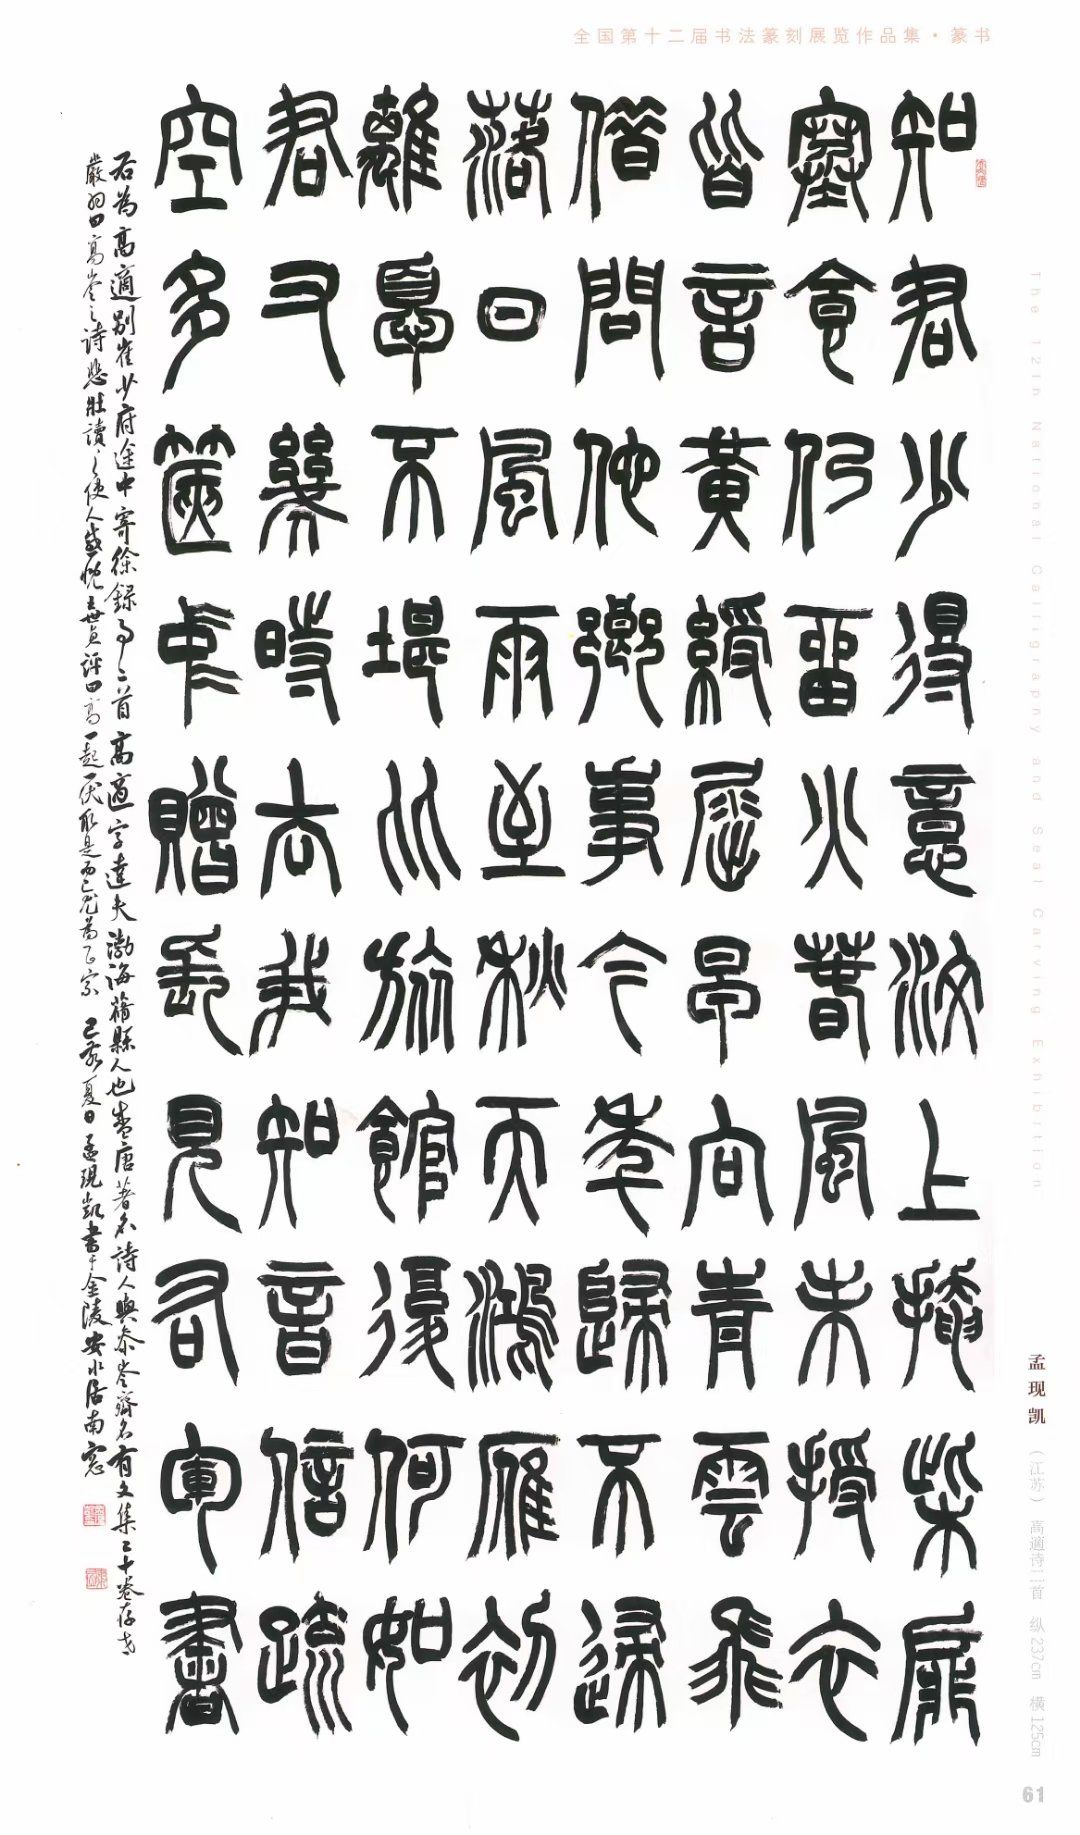 全国第十二届书法篆刻展览作品集·篆书
知君少得意汶上掩柴扉
寒食仍留火春風未授衣
皆言黃綬屈早向青雲飛
借問他鄉事今年歸不歸
落日風雨至秋天鴻雁初
離憂不堪比旅館復何如
君又幾時去我知音信疏
空多篋中贈長見右軍書
右為高適別崔少府途中寄徐錄事二首高適字達夫渤海蓨縣人也盛唐著名詩人與參岑齊名有文集二十卷存世
嚴羽曰高岑之詩悲壯讀之使人感慨世貞評曰高一起一伏取是而已尤為正宗 己亥夏日孟現凱書于金陵安水居南窗
The 12th National Calligraphy and Seal Carving Exhibition
孟现凯（江苏） 高適诗二首 纵237cm 横125cm
61